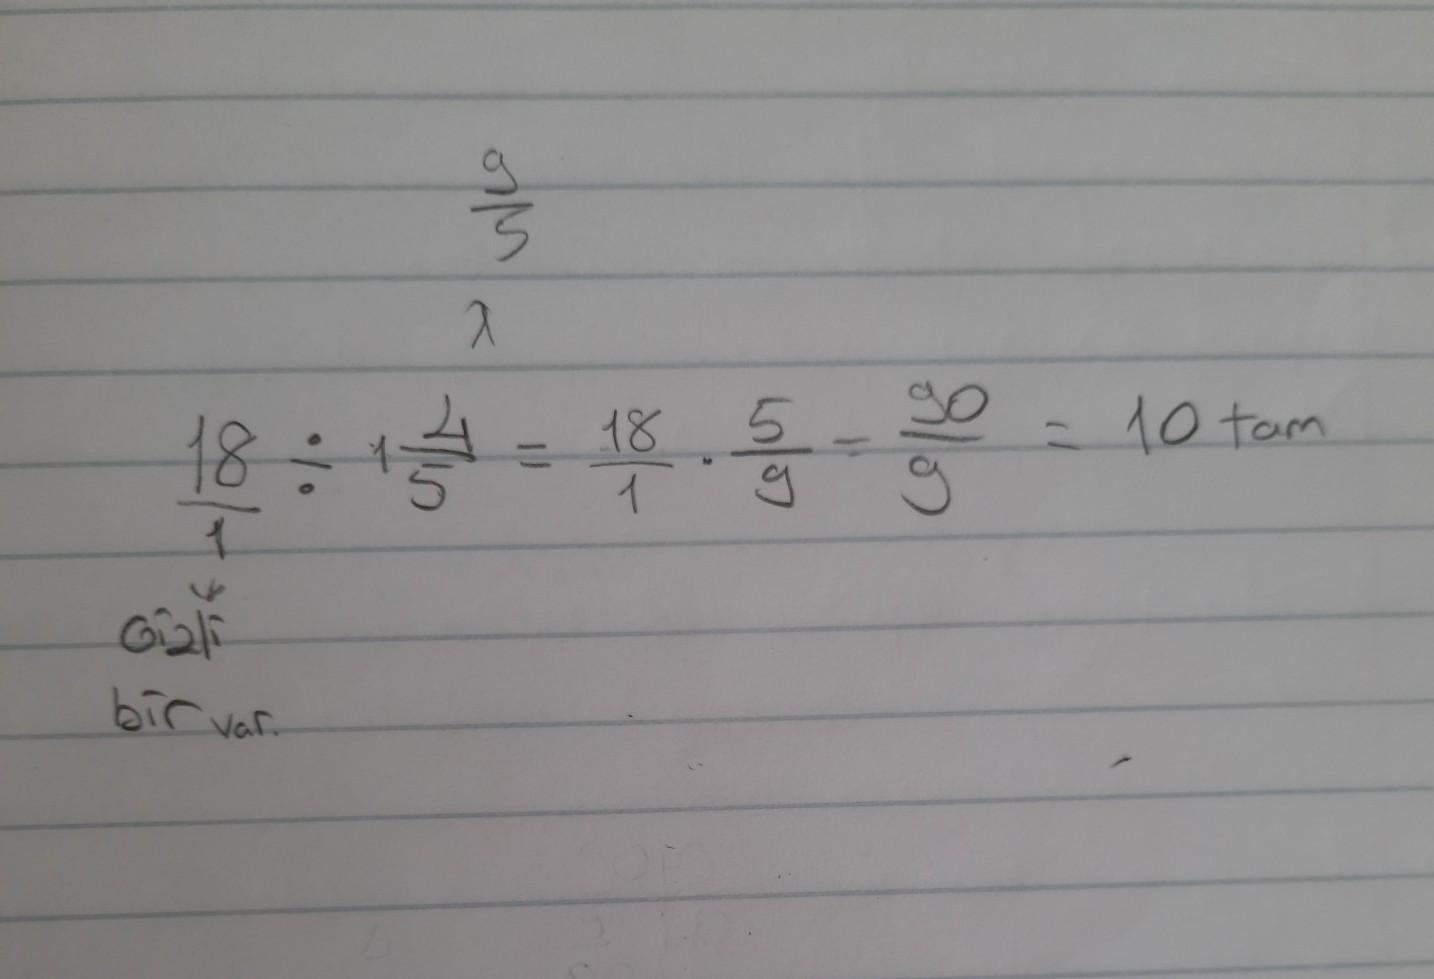 9/5
18/1 ÷ 1 4/5 = 18/1 . 5/9 = 90/9 = 10 tam
Gizli
bir var.